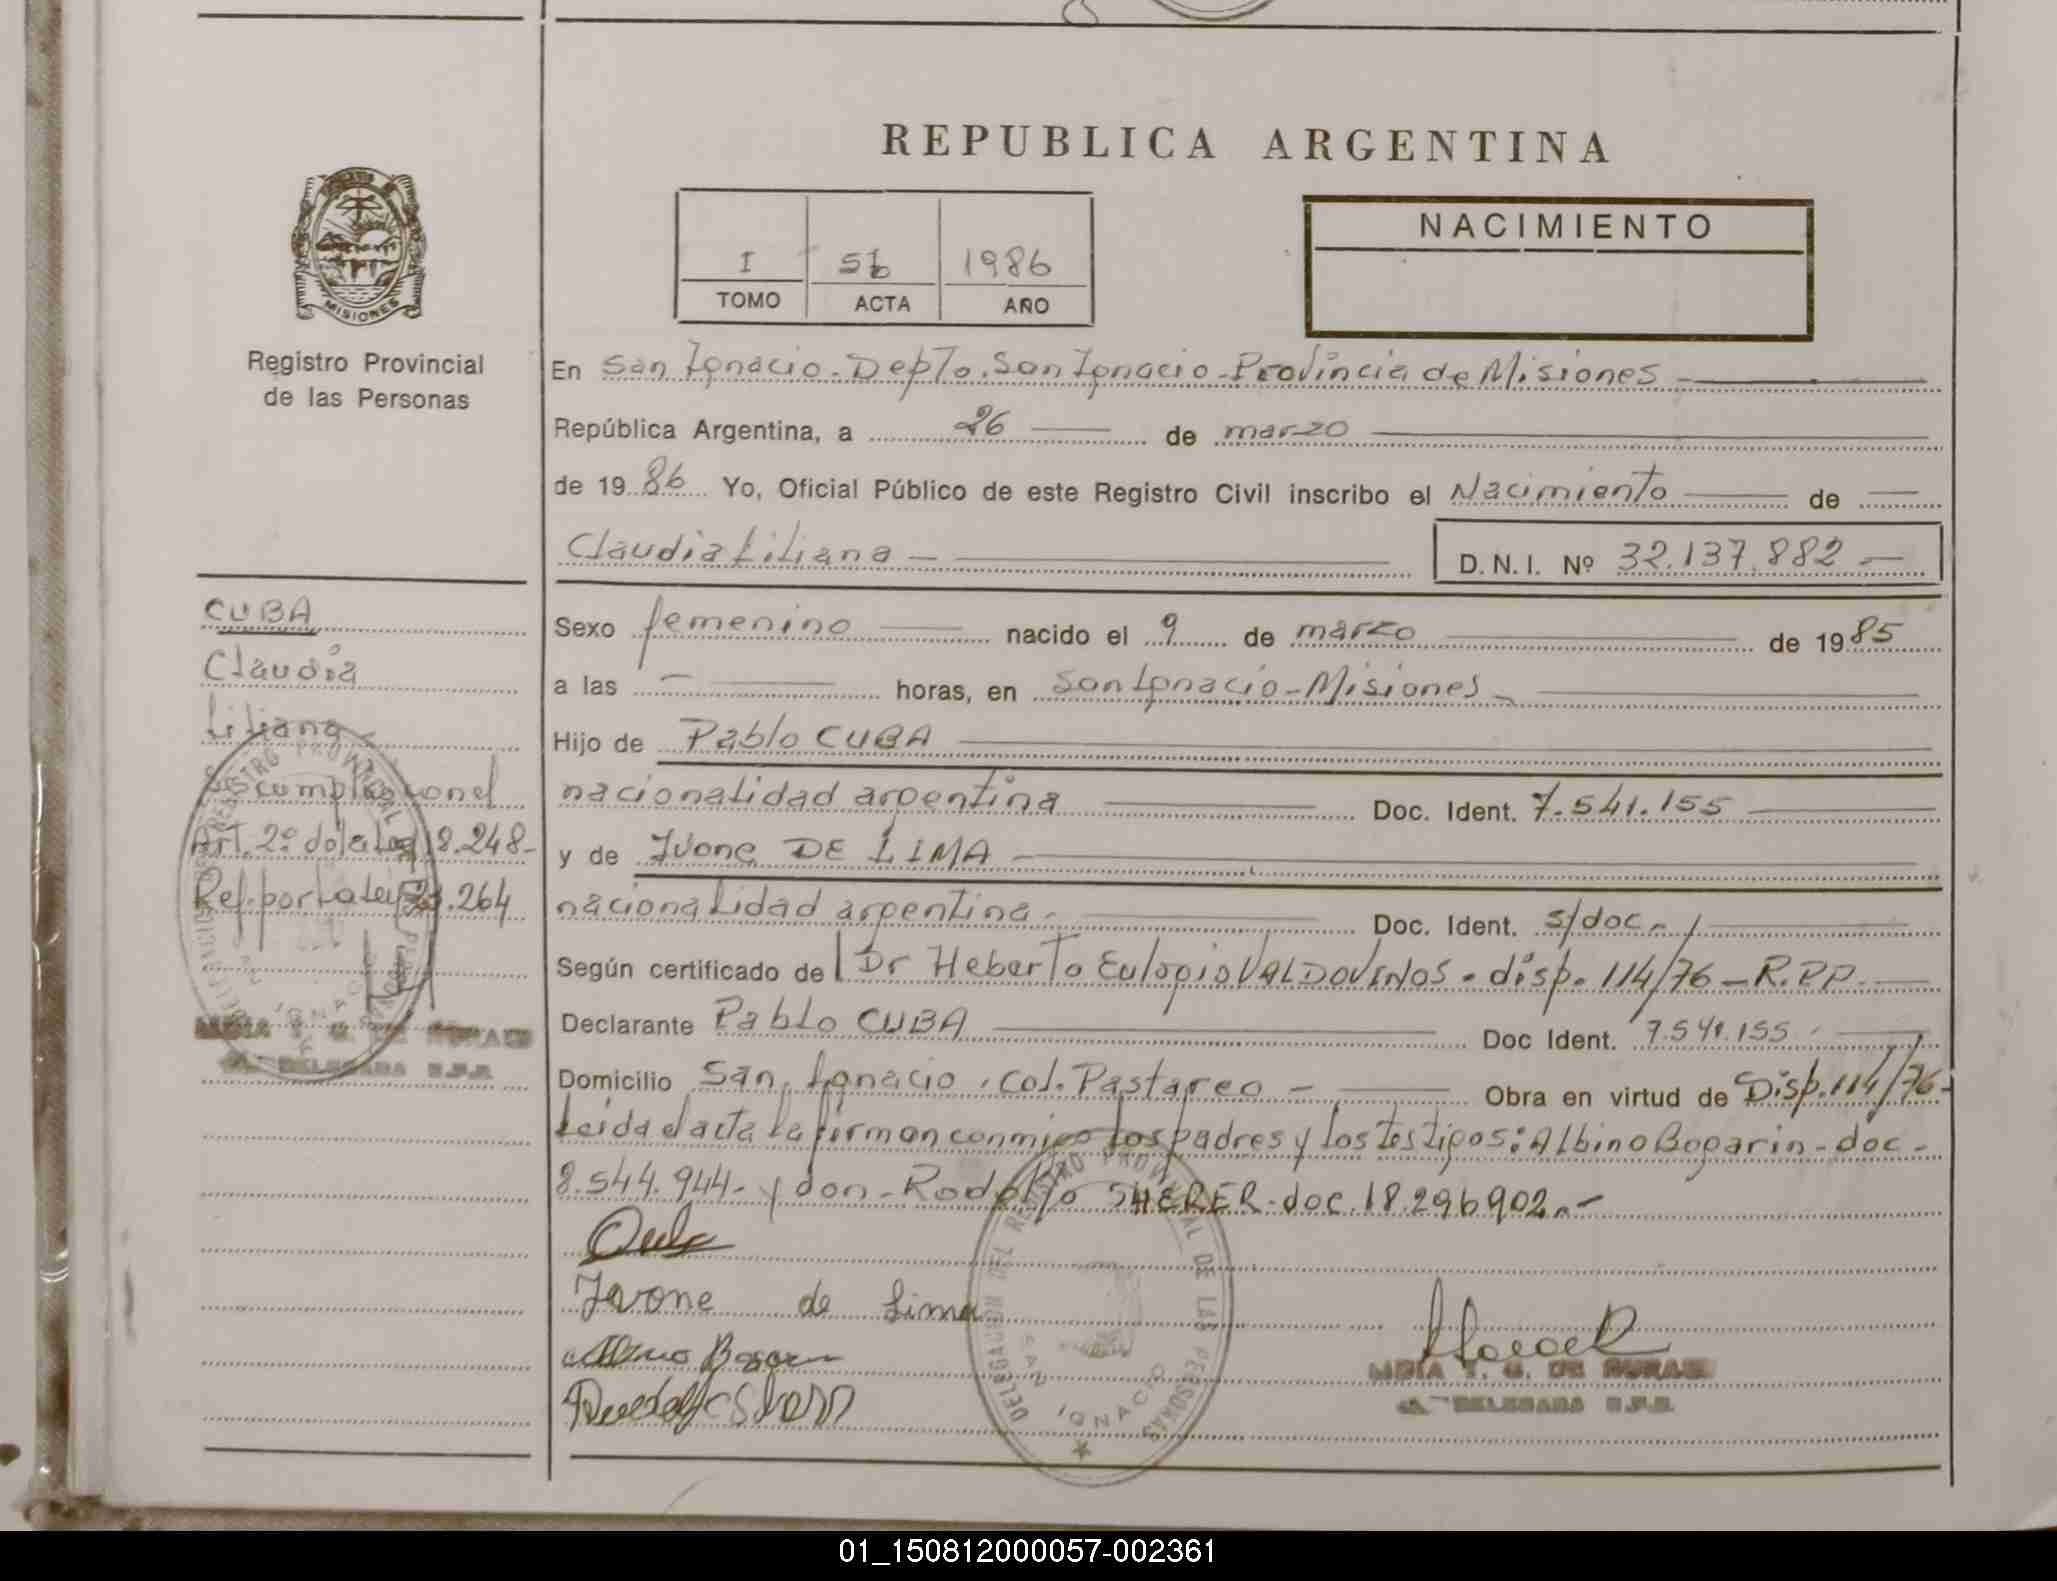 REPUBLICA ARGENTINA
MISIONES
Registro Provincial
de las Personas
I 56 1986
TOMO ACTA AÑO
NACIMIENTO
En San Ignacio - Depto. San Ignacio - Provincia de Misiones -
República Argentina, a 26 de marzo
de 1986 Yo, Oficial Público de este Registro Civil inscribo el Nacimiento de
Claudia Liliana - D. N. I. Nº 32.137.882 -
Sexo femenino nacido el 9 de marzo de 1985
a las - horas, en San Ignacio - Misiones -
Hijo de Pablo CUBA
nacionalidad argentina Doc. Ident. 7.541.155
y de Ivone DE LIMA -
nacionalidad argentina - Doc. Ident. s/doc -
Según certificado de Dr Heberto Eulogio VALDOVINOS - disp. 114/76 - R.P.P.
Declarante Pablo CUBA Doc Ident. 7.541.155
Domicilio San Ignacio, Col. Pastoreo - Obra en virtud de Disp. 114/76 -
Leida el acta la firman conmigo los padres y los testigos: Albino Bogarin - doc -
8.544.944 - y don - Rodolfo SHERER - doc. 18.296902. -
Ivone de Lima
DELEGACION DEL REGISTRO PROVINCIAL DE LAS PERSONAS
SAN IGNACIO
T. G. DE
DELEGADA R.P.P.
CUBA
Claudia
Liliana
Se cumplió con el
Art. 2º de la Ley 18.248 -
Ref. por la Ley 23.264
REGISTRO PROVINCIAL DE LAS PERSONAS
SAN IGNACIO
DELEGADA R.P.P.
01_150812000057-002361